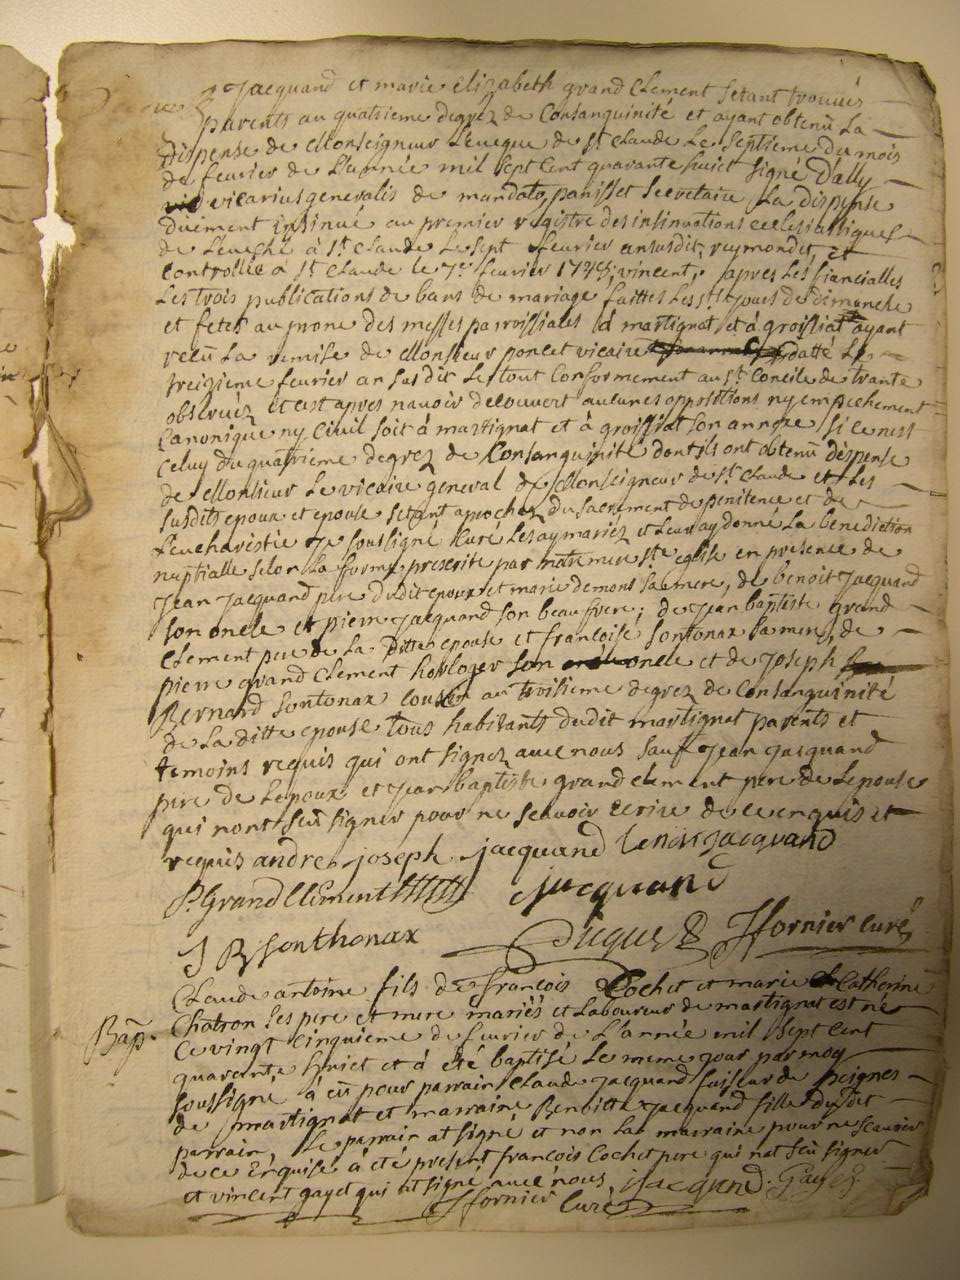 Jacquand et marie Elizabeth grand Clement setant trouués
parents au quatrieme degrez de Consanguinité et ayant obtenû La
dispense de Monseigneur L'eueque de St Claude Le septieme du mois
de feurier de L'année mil sept cent quarante huict signé Dally
vicarius generalis de mandato, panisset secretaire La dispense
duëment insinué au premier registre des insinuations ecclesiastiques
de L'eueché à St Claude Le sept feurier an susdit, reymondet, et
Controllée a St Claude le 7e feurier 1748, vincent, apres Les fiancialles
Les trois publications de bans de mariage faittes Les sts jours de dimanche
et fetes au prone des messes parroissiales à martignat et à groissiat ayant
reçû La remise de Monsieur poncet vicaire datté Le
treizieme feurier an susdit Le tout Conformement au St Concile de trante
obseruéz et est apres nauoir decouuert aucunes oppositions ny empechement
Canonique ny Ciuil soit à martignat et à groissiat son annexe si ce nest
Celuy du quatrieme degrez de Consanguinité dont ils ont obtenû dispense
de Monsieur Le vicaire general de Monseigneur de St Claude et Les
susdits epoux et epouse setant aprochez du sacrement de penitence et de
L'eucharistie Je soussigné Curé Les ay mariez et Leur ay donné La benediction
nuptialle selon La forme prescrite par notre mere ste eglise en presence de
Jean Jacquand pere dudit epoux et marie demons sa mere, de benoit Jacquand
son oncle et pierre Jacquand son beau frere; de Jean baptiste grand
Clement pere de La ditte epouse et francoise sontonax sa mere, de
pierre grand Clement horloger son oncle et de Joseph
Bernard sontonax cousin au troisieme degrez de Consanguinité
de La ditte epouse tous habitants dudit martignat parents et
temoins requis qui ont signez auec nous sauf Jean Jacquand
pere de Lepoux et Jean baptiste grand clement pere de Lepouse
qui nont sçû signer pour ne sçauoir ecrire de ce enquis et
requis andre joseph jacquand benoi jacquand
P. Grand Clement Jacquand
J B sonthonax fornier curé
Bap. Claude antoine fils de françois Cochet et marie Catherine
Chatron ses pere et mere mariés et Laboureur de martignat est né
Ce vingt cinquieme de feurier de L'année mil sept cent
quarante huict et à été baptisé Le meme jour par moy
soussigné à eu pour parrain Claude Jacquand faiseur de peignes
de martignat et marraine Benoitte Jacquand fille dudit
parrain, Le parrain at signé et non La marraine pour ne sçauoir
de ce Enquise à été présent francois Cochet pere qui nat sçû signer
et vincent gayet qui at signé auec nous, jacquand. Gayet
fornier Curé